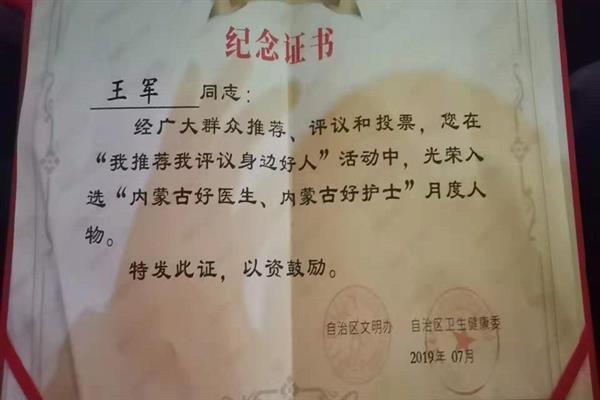 纪念证书
王军 同志：
经广大群众推荐、评议和投票，您在
“我推荐我评议身边好人”活动中，光荣入
选“内蒙古好医生、内蒙古好护士”月度人
物。
特发此证，以资鼓励。
自治区文明办 自治区卫生健康委
2019年07月